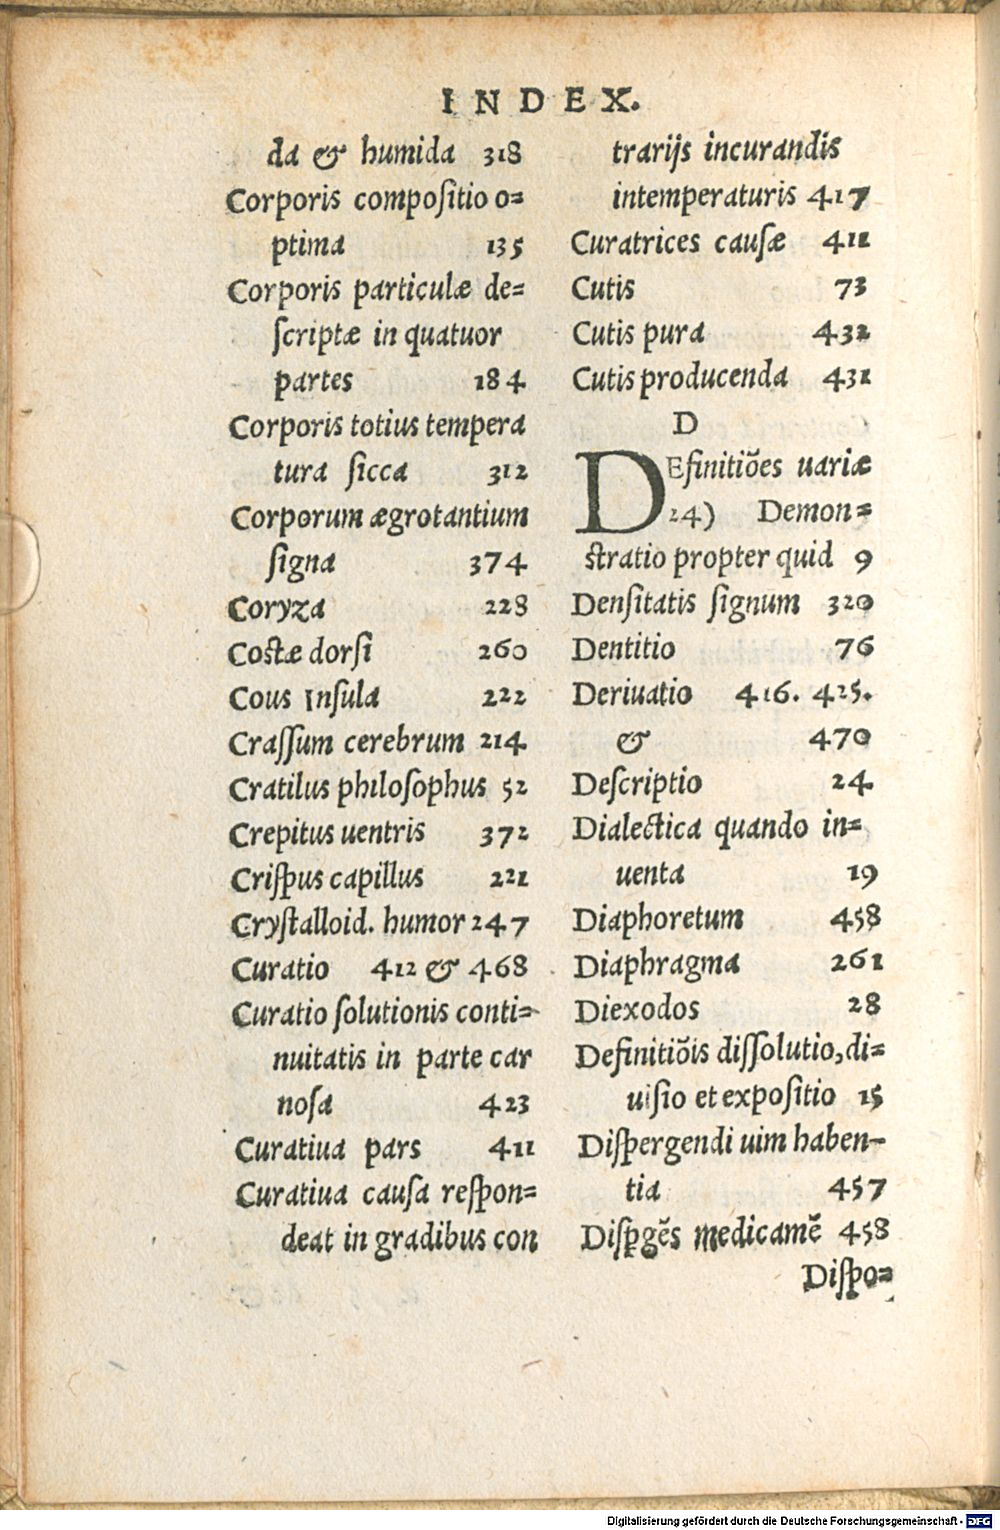 INDEX.
da & humida 318
Corporis compoſitio o=
ptima 135
Corporis particulæ de=
ſcriptæ in quatuor
partes 184
Corporis totius tempera
tura ſicca 312
Corporum ægrotantium
ſigna 374
Coryza 228
Coſtæ dorſi 260
Cous Inſula 222
Craſſum cerebrum 214
Cratilus philoſophus 52
Crepitus uentris 372
Criſpus capillus 221
Cryſtalloid. humor 247
Curatio 412 & 468
Curatio ſolutionis conti=
nuitatis in parte car
noſa 423
Curatiua pars 411
Curatiua cauſa reſpon=
deat in gradibus con
trarijs incurandis
intemperaturis 417
Curatrices cauſæ 411
Cutis 73
Cutis pura 432
Cutis producenda 431
D
DEfinitiões uariæ
24) Demon=
ſtratio propter quid 9
Denſitatis ſignum 320
Dentitio 76
Deriuatio 416. 425.
& 470
Deſcriptio 24
Dialectica quando in=
uenta 19
Diaphoretum 458
Diaphragma 261
Diexodos 28
Definitiõis diſſolutio,di=
uiſio et expoſitio 15
Diſpergendi uim haben-
tia 457
Diſꝑgẽs medicamẽ 458
Diſpo=
Digitalisierung gefördert durch die Deutsche Forschungsgemeinschaft - DFG